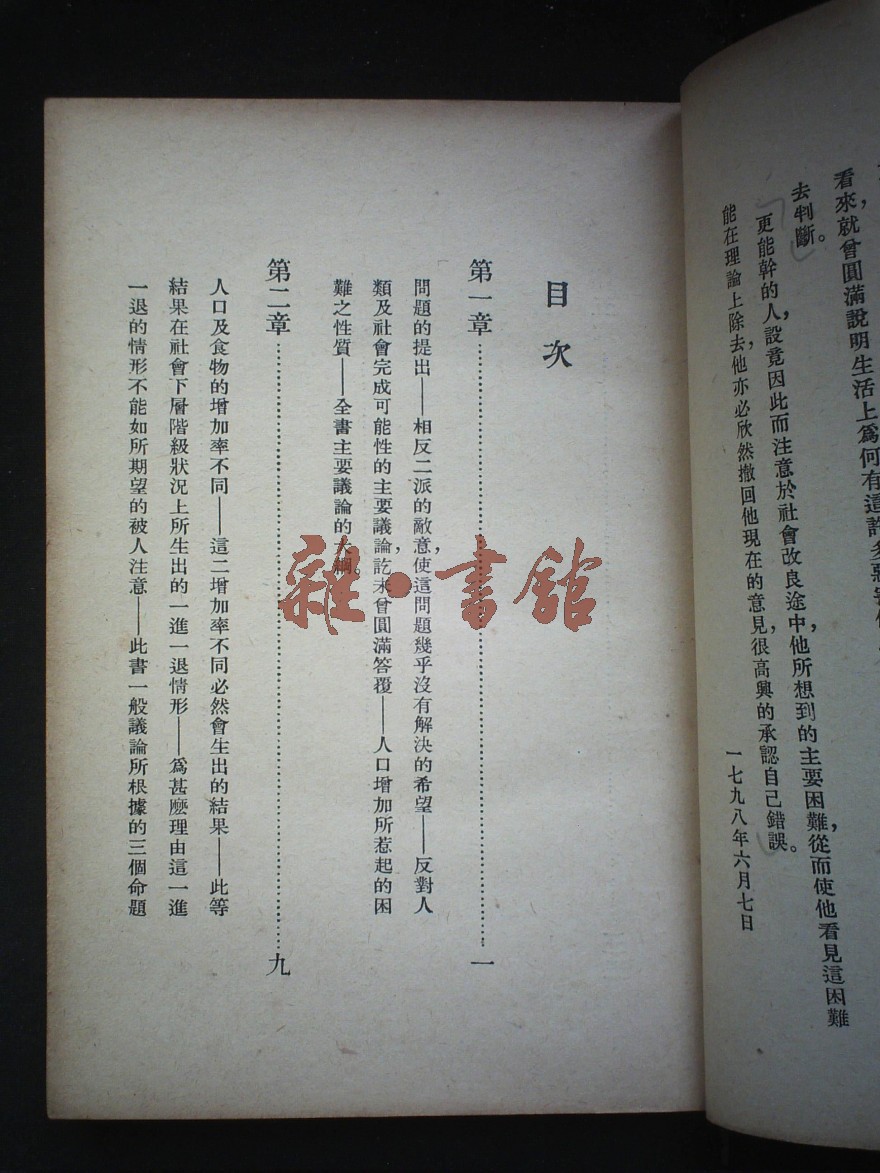 看來，就曾圓滿說明生活上爲何有這許多
去判斷。
更能幹的人，設竟因此而注意於社會改良途中，他所想到的主要困難，從而使他看見這困難
能在理論上除去，他亦必欣然撤回他現在的意見，很高興的承認自己錯誤。
一七九八年六月七日
目次
第一章……一
問題的提出——相反二派的敵意使這問題幾乎沒有解決的希望——反對人
類及社會完成可能性的主要議論，訖未曾圓滿答覆——人口增加所惹起的困
難之性質——全書主要議論的大綱。
第二章……九
人口及食物的增加率不同——這二增加率不同必然會生出的結果——此等
結果在社會下層階級狀況上所生出的一進一退情形——爲甚麽理由這一進
一退的情形不能如所期望的被人注意——此書一般議論所根據的三個命題
雜·書館